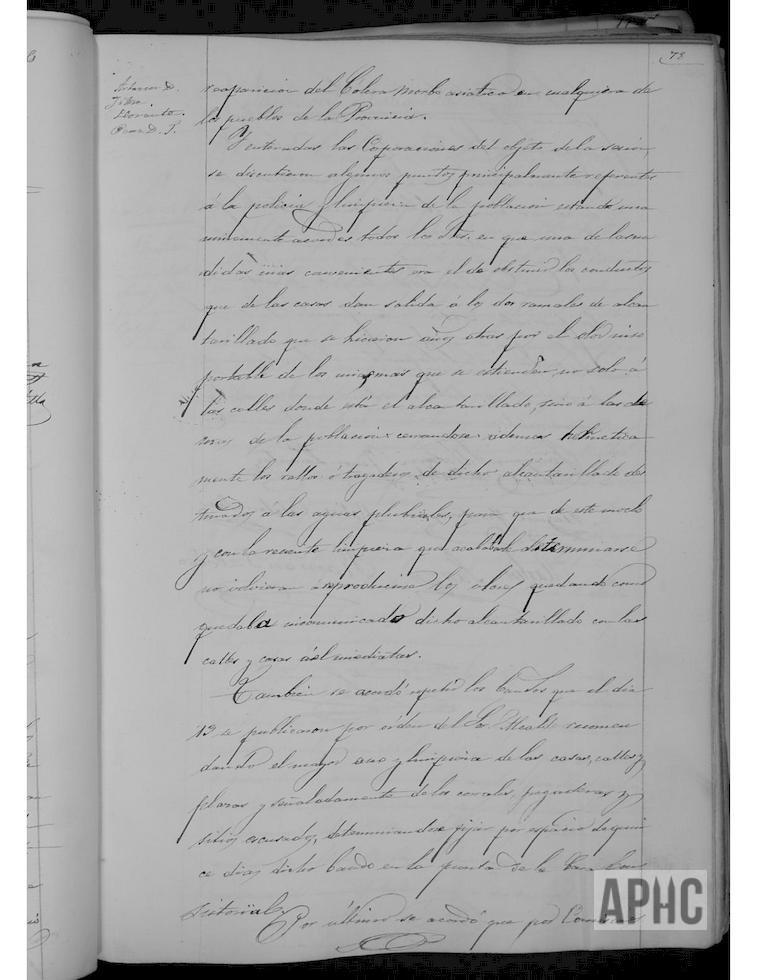 78
Antonio D.
Llorente.
reaparicion del Colera morbo asiatico en cualquiera de
los pueblos de la Provincia.
Y enteradas las Corporaciones del objeto de la sesion,
se discutieron algunos puntos principalmente referentes
á la policia y limpieza de la poblacion estando una
nimemente acordes todos los Sres. en que una de las me
didas mas convenientes era el de obstruir los conductos
que de las casas dan salida á los dos ramales de alcan
tarillado que se hicieron años atras por el olor inso
portable de los miasmas que se estienden, no solo á
las calles donde está el alcantarillado, sino á las de
mas de la poblacion: cerrandose ademas hermetica
mente los vallos ó tragaderos de dicho alcantarillado des
tinados á las aguas pluviales, para que de este modo
y con la reciente limpieza que acababa de terminarse
no volvieran á reproducirse los olores quedando como
quedaba incomunicado dicho alcantarillado con las
calles y casas á él inmediatas.
Tambien se acordó repetir los bandos que el dia
13 se publicaron por órden del Sr. Alcalde recomen
dando el mayor aseo y limpieza de las casas, calles y
plazas y señaladamente de los corrales, pajaderas y
sitios escusados, determinandose fijar por espacio de quin
ce dias dicho bando en la puerta de la Casa Con
sistorial.
Por último se acordó que por
APHC